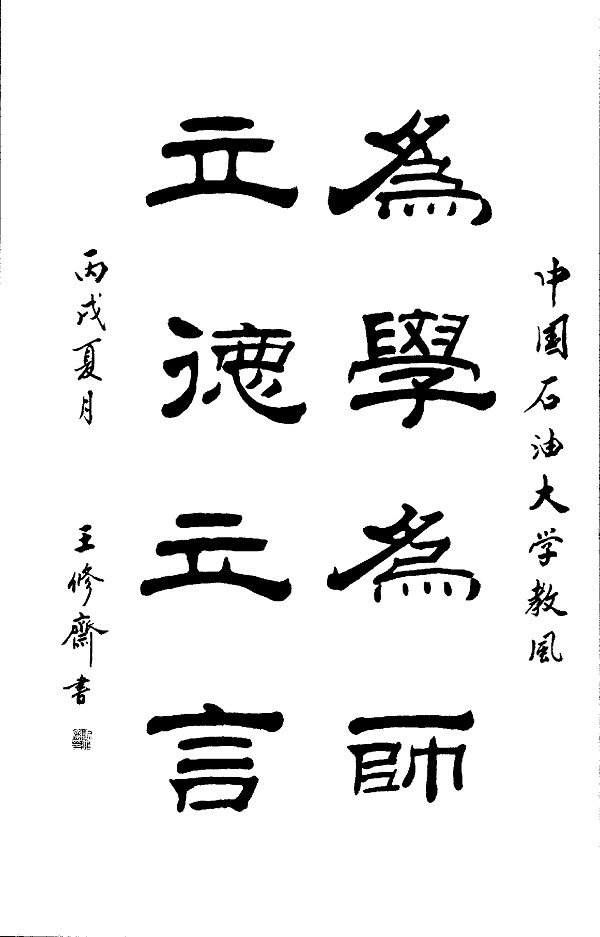 中国石油大学教風
為學為師
立德立言
丙戌夏月 王修齋書